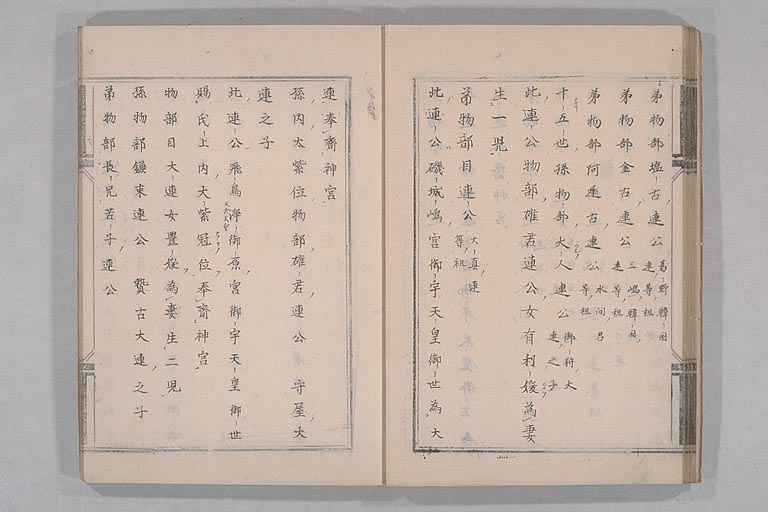 弟物部塩古連公 葛野韓国連等祖
弟物部金古連公 三嶋韓国連等祖
弟物部阿遅古連公 水間君等祖
十五世孫物部大人連公 御狩大連之子
此連公物部雄君連公女有利媛為妻
生一児
弟物部目連公 大真連等祖
此連公磯城嶋宮御宇天皇御世為大
連奉齋神宮
孫内大紫位物部雄君連公 守屋大
連之子
此連公飛鳥浄御原宮御宇天皇御世
天武天皇
賜氏上内大紫冠位奉齋神宮
物部目大連女豊媛為妻生二児
孫物部鏤束連公 贄古大連之子
弟物部長兄若子連公